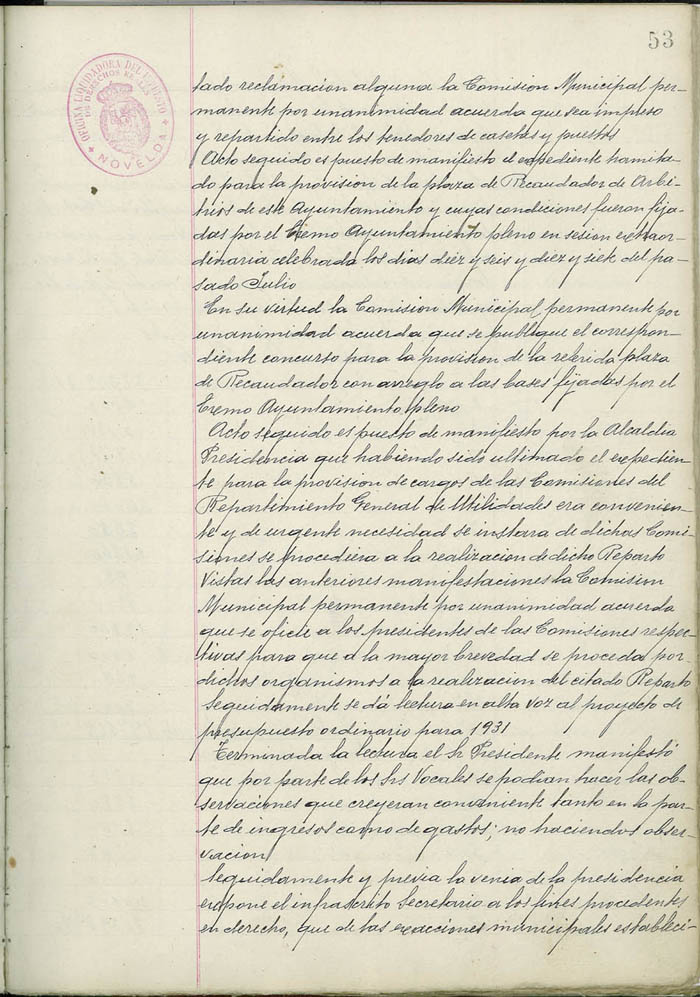 53
OFICINA LIQUIDADORA DEL IMPUESTO
DE DERECHOS REALES
NOVELDA
tado reclamacion alguna la Comision Municipal per-
manente por unanimidad acuerda que sea impreso
y repartido entre los tenedores de casetas y puestos
Acto seguido es puesto de manifiesto el expediente tramita-
do para la provision de la plaza de Recaudador de Arbi-
trios de este Ayuntamiento y cuyas condiciones fueron fija-
das por el Exmo Ayuntamiento pleno en sesion extraor-
dinaria celebrada los dias diez y seis y diez y siete del pa-
sado Julio
En su virtud la Comision Municipal permanente por
unanimidad acuerda que se publique el correspon-
diente concurso para la provision de la referida plaza
de Recaudador con arreglo a las bases fijadas por el
Exmo Ayuntamiento pleno
Acto seguido es puesto de manifiesto por la Alcaldia
Presidencia que habiendo sido ultimado el expedien-
te para la provision de cargos de las Comisiones del
Repartimiento General de Utilidades era convenien-
te y de urgente necesidad se instara de dichas Comi-
siones se procediera a la realizacion de dicho Reparto
Vistas las anteriores manifestaciones la Comision
Municipal permanente por unanimidad acuerda
que se oficie a los presidentes de las Comisiones respec-
tivas para que a la mayor brevedad se proceda por
dichos organismos a la realizacion del citado Reparto
Seguidamente se dá lectura en alta voz al proyecto de
presupuesto ordinario para 1931
Terminada la lectura el Sr Presidente manifestó
que por parte de los Srs Vocales se podian hacer las ob-
servaciones que creyeran conveniente tanto en la par-
te de ingresos como de gastos; no haciendos obser-
vacion
Seguidamente y previa la venia de la presidencia
expone el infrascrito Secretario a los fines procedentes
en derecho, que de las exacciones municipales estableci-